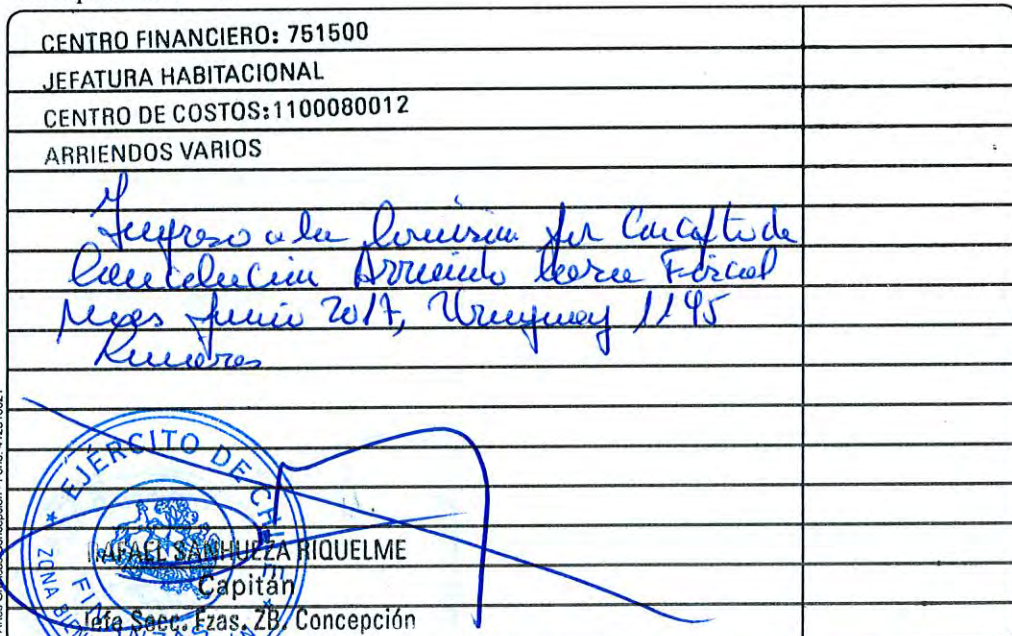 CENTRO FINANCIERO: 751500
JEFATURA HABITACIONAL
CENTRO DE COSTOS:1100080012
ARRIENDOS VARIOS
Ingreso a la Comisión por Concepto de
Cancelación Arriendo Casa Fiscal
Mes Junio 2017, Uruguay 1195
EJÉRCITO DE CHILE
RAFAEL SANHUEZA RIQUELME
Capitán
Jefe Secc. Fzas. ZB. Concepción